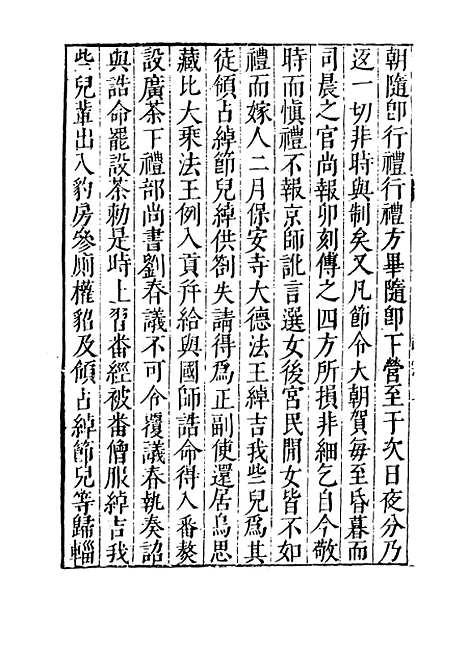 朝隨卽行禮行禮方畢隨卽下營至于次日夜分乃
迄一切非時與制矣又凡節令大朝賀每至昏暮而
司晨之官尚報卯刻傳之四方所損非細乞自今敬
時而愼禮不報京師訛言選女後宮民閒女皆不如
禮而嫁人二月保安寺大德法王綽吉我些兒爲其
徒領占綽節兒綽供劄失請得爲正副使還居烏思
藏比大乘法王例入貢幷給與國師誥命得入番熬
設廣茶下禮部尚書劉春議不可令覆議春執奏詔
與誥命罷設茶勑是時上習番經被番僧服綽吉我
些兒輩出入豹房參廁權貂及領占綽節兒等歸輜